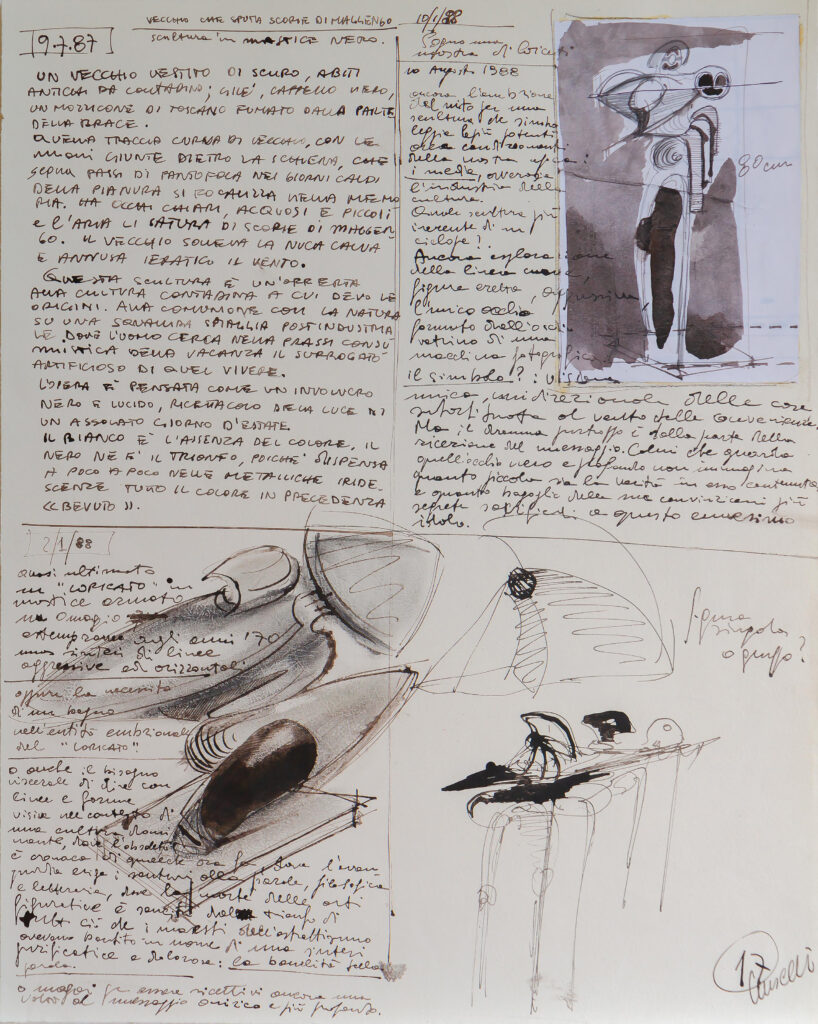 9.7.87
VECCHIO CHE SPUTA SCORIE DI MAGGENGO
scultura in MASTICE NERO.
UN VECCHIO VESTITO DI SCURO, ABITI
ANTICHI DA CONTADINO; GILE', CAPPELLO NERO,
UN MOZZICONE DI TOSCANO FUMATO DALLA PARTE
DELLA BRACE.
QUELLA TRACCIA CURVA DI VECCHIO, CON LE
MANI GIUNTE DIETRO LA SCHIENA, CHE
SEGUA PASSI DI PANTOFOLA NEI GIORNI CALDI
DELLA PIANURA SI FOCALIZZA NELLA MEMO
RIA. HA OCCHI CHIARI, ACQUOSI E PICCOLI
E L'ARIA LI SATURA DI SCORIE DI MAGGEN-
GO. IL VECCHIO SOLLEVA LA NUCA CALVA
E ANNUSA IERATICO IL VENTO.
QUESTA SCULTURA È UN'OFFERTA
ALLA CULTURA CONTADINA A CUI DEVO LE
ORIGINI. ALLA COMUNIONE CON LA NATURA
SU UNA SQUALLIDA SPIAGGIA POSTINDUSTRIA
LE DOVE L'UOMO CERCA NELLA PRASSI CONSU
MISTICA DELLA VACANZA IL SURROGATO
ARTIFICIOSO DI QUEL VIVERE.
L'OPERA È PENSATA COME UN INVOLUCRO
NERO E LUCIDO, RICETTACOLO DELLA LUCE DI
UN ASSOLATO GIORNO D'ESTATE.
IL BIANCO È L'ASSENZA DEL COLORE, IL
NERO NE È IL TRIONFO, POICHÈ DISPENSA
A POCO A POCO NELLE METALLICHE IRIDE-
SCENZE TUTTO IL COLORE IN PRECEDENZA
«BEVUTO».
10/1/88
Sogno una
mostra di
10 Agosto 1988
ancora l'ambizione
del mito per una
scultura che simbo
leggia le più potenti
condizionamenti
della nostra epoca:
i media, ovverosia
l'industria della
cultura.
Quale scultura più
inerente di un
ciclope?
Ancora esplorazione
della linea curva,
figura eretta,
l'unico occhio
formato dall'occhio
vetrino di una
macchina fotografica.
il simbolo? : visione
unica, unidirezionale delle cose
al vento delle convenienze.
Ma il dramma purtroppo è dalla parte della
ricezione del messaggio. Colui che guarda
quell'occhio nero e profondo non immagina
quanto piccola sia la verità in esso contenuta
e quanto bagaglio delle sue convinzioni più
segrete sacrifichi a questo ennesimo
idolo.
80 cm
2/1/88
quasi ultimato
un "LORICATO" in
mastice armato
un omaggio
estemporaneo agli anni '70
una sintesi di linee
aggressive ed orizzontali
oppure la necessità
d'un sogno
nell'entità embrionale
del "LORICATO".
o anche il bisogno
viscerale di dire con
linee e forme
visive nel contesto di
una cultura domi
nante, dove l'obsoleto
è cronaca di qualche ora fa, dove l'avan
guardia erige i santuari alla parola, filosofica
e letteraria, dove la morte delle arti
figurative è sancita dal trionfo di
ciò che i maestri dell'astrattismo
avevano bandito in nome di una sintesi
purificatrice e dolorosa: la banalità della
parola.
o magari per essere ricettivi ancora una
volta al messaggio onirico e più profondo.
figura
singola
o gruppo?
17